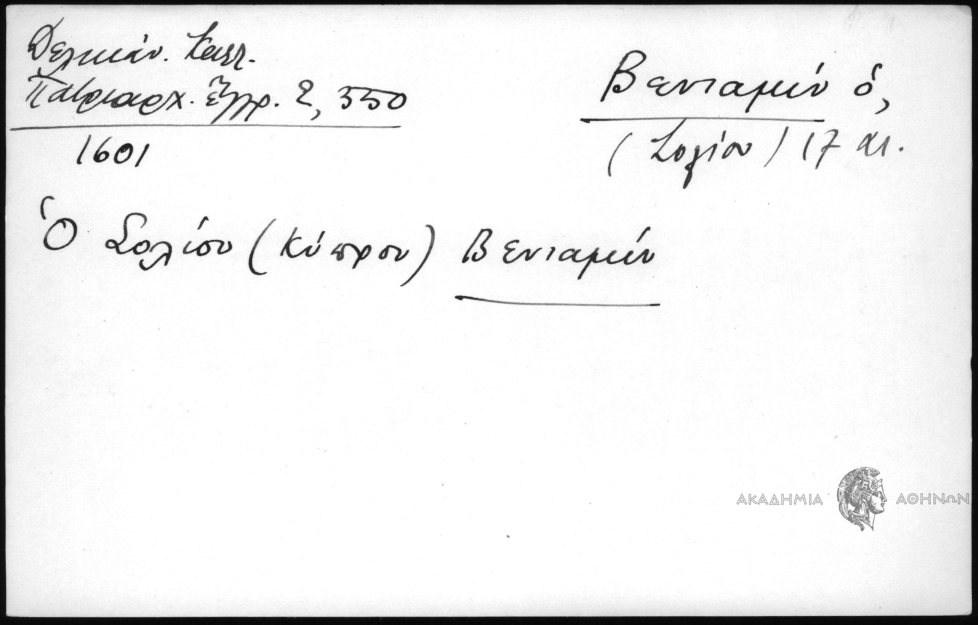 Δελικάν. Καλλ.
Πατριαρχ. Ἔγγρ. 2, 350
1601
Βενιαμίν ὁ,
(Σολίου) 17 αι.
Ὁ Σολίου (Κύπρου) Βενιαμίν
ΑΚΑΔΗΜΙΑ ΑΘΗΝΩΝ